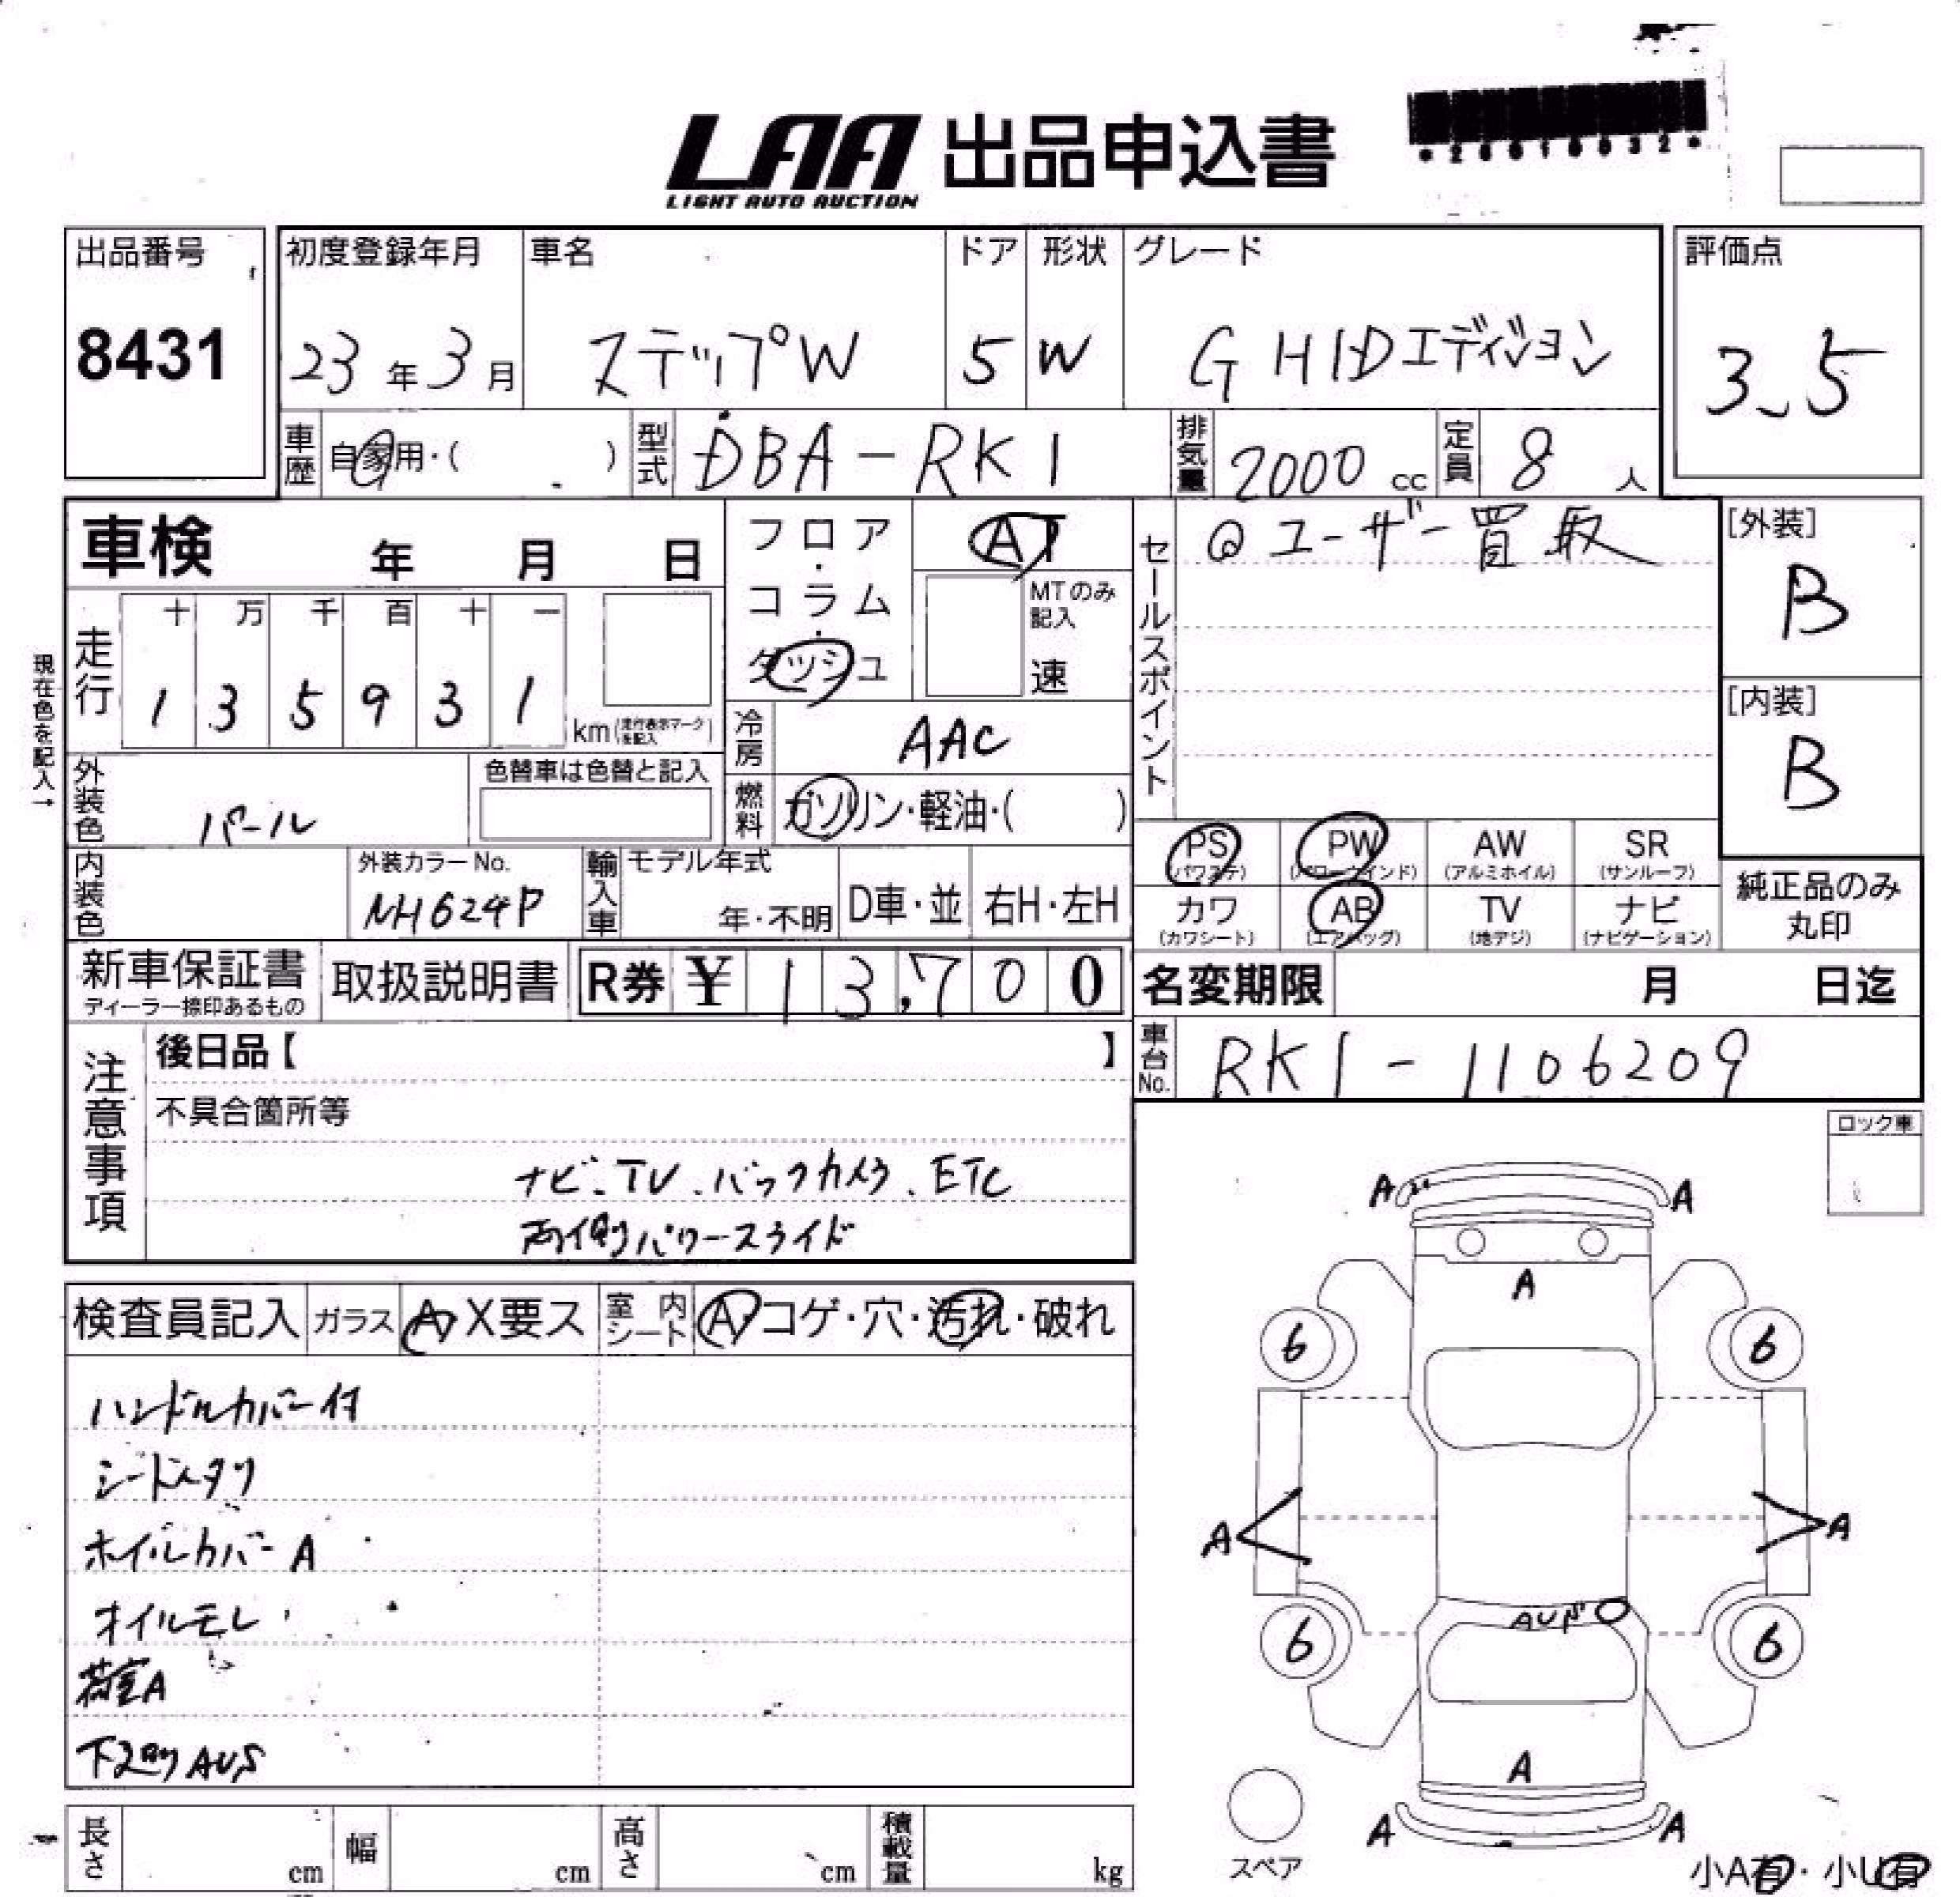 LAA 出品申込書
LIGHT AUTO AUCTION
出品番号
8431
初度登録年月
23年3月
車名
ステップW
ドア
5
形状
W
グレード
G HIDエディション
評価点
3.5
車歴
自家用・( )
型式
DBA-RK1
排気量
2000 cc
定員
8 人
車検 年 月 日
フロア・コラム・ダッシュ
AT
MTのみ記入
速
セールスポイント
ユーザー買取
[外装]
B
[内装]
B
現在色を記入→
走行
十 万 千 百 十 一
1 3 5 9 3 1
km(走行表示マークを記入)
冷房
AAC
燃料
ガソリン・軽油・( )
外装色
パール
色替車は色替と記入
内装色
外装カラーNo.
NH624P
輸入車
モデル年式
年・不明
D車・並
右H・左H
PS
(パワステ)
PW
(パワーウインド)
AW
(アルミホイル)
SR
(サンルーフ)
カワ
(カワシート)
AB
(エアバッグ)
TV
(地デジ)
ナビ
(ナビゲーション)
純正品のみ
丸印
新車保証書
ディーラー捺印あるもの
取扱説明書
R券 ¥ 13,700
名変期限 月 日迄
車台No.
RK1-1106209
注意事項
後日品【 】
不具合箇所等
ナビ.TV.バックカメラ.ETC
両側パワースライド
ロック車
検査員記入
ガラス
A X要ス
室内シート
A・コゲ・穴・汚れ・破れ
ハンドルカバー付
シートヘタリ
ホイルカバーA
オイルモレ
荷室A
下廻りAUS
A A
A
6 6
A A
AU
6 6
A
A A
スペア
小A有・小U有
長さ cm
幅 cm
高さ cm
積載量 kg